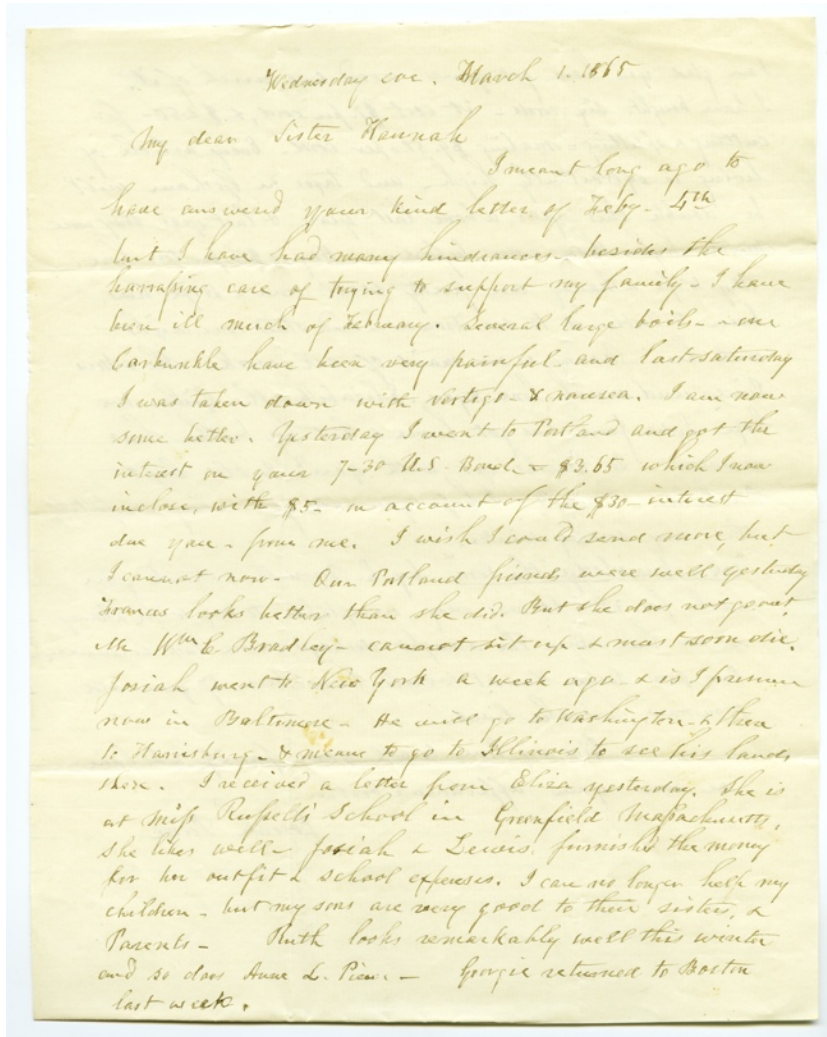 Wednesday eve. March 1. 1865
My dear Sister Hannah
I meant long ago to
have answered your kind letter of Feby. 4th
but I have had many hindrances - besides the
harrassing care of trying to support my family - I have
been ill much of February. Several large boils - & one
Carbunkle have been very painful - and last saturday
I was taken down with vertigo - & nausea. I am now
some better. Yesterday I went to Portland and got the
interest on your 7-30 U.S. Bond - $3.65 which I now
inclose, with $5 - on account of the $30 - interest
due you - from me. I wish I could send more, but
I cannot now - Our Portland friends were well yesterday
Frances looks better than she did. But she does not go out.
Mr Wm C Bradley - cannot sit up - & must soon die.
Josiah went to New York a week ago - & is I presume
now in Baltimore - He will go to Washington - & then
to Harrisburg - & means to go to Illinois to see his lands
there. I received a letter from Eliza yesterday. She is
at Miss Russell's School in Greenfield Massachusetts,
she likes well - Josiah & Lewis, furnishd the money
for her outfit & school expenses. I can no longer help my
children - but my sons are very good to their sisters, &
Parents - Ruth looks remarkably well this winter
and so does Anne L. Pierce - Georgie returned to Boston
last week.